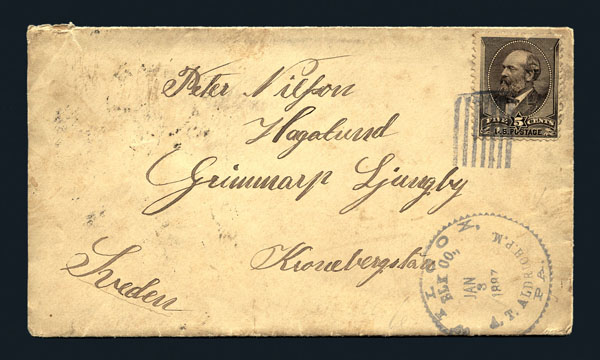 Peter Nilsson
Hagalund
Grimmarp Ljungby
Kronebergslän
Sweden
FIVE 5 CENTS
U.S. POSTAGE
WILCOX
ELK CO.,
PA.
JAN
3
1887
A. T. ALDRICH P.M.